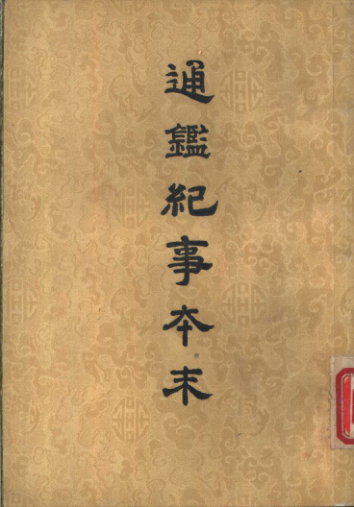 通鑑紀事本末